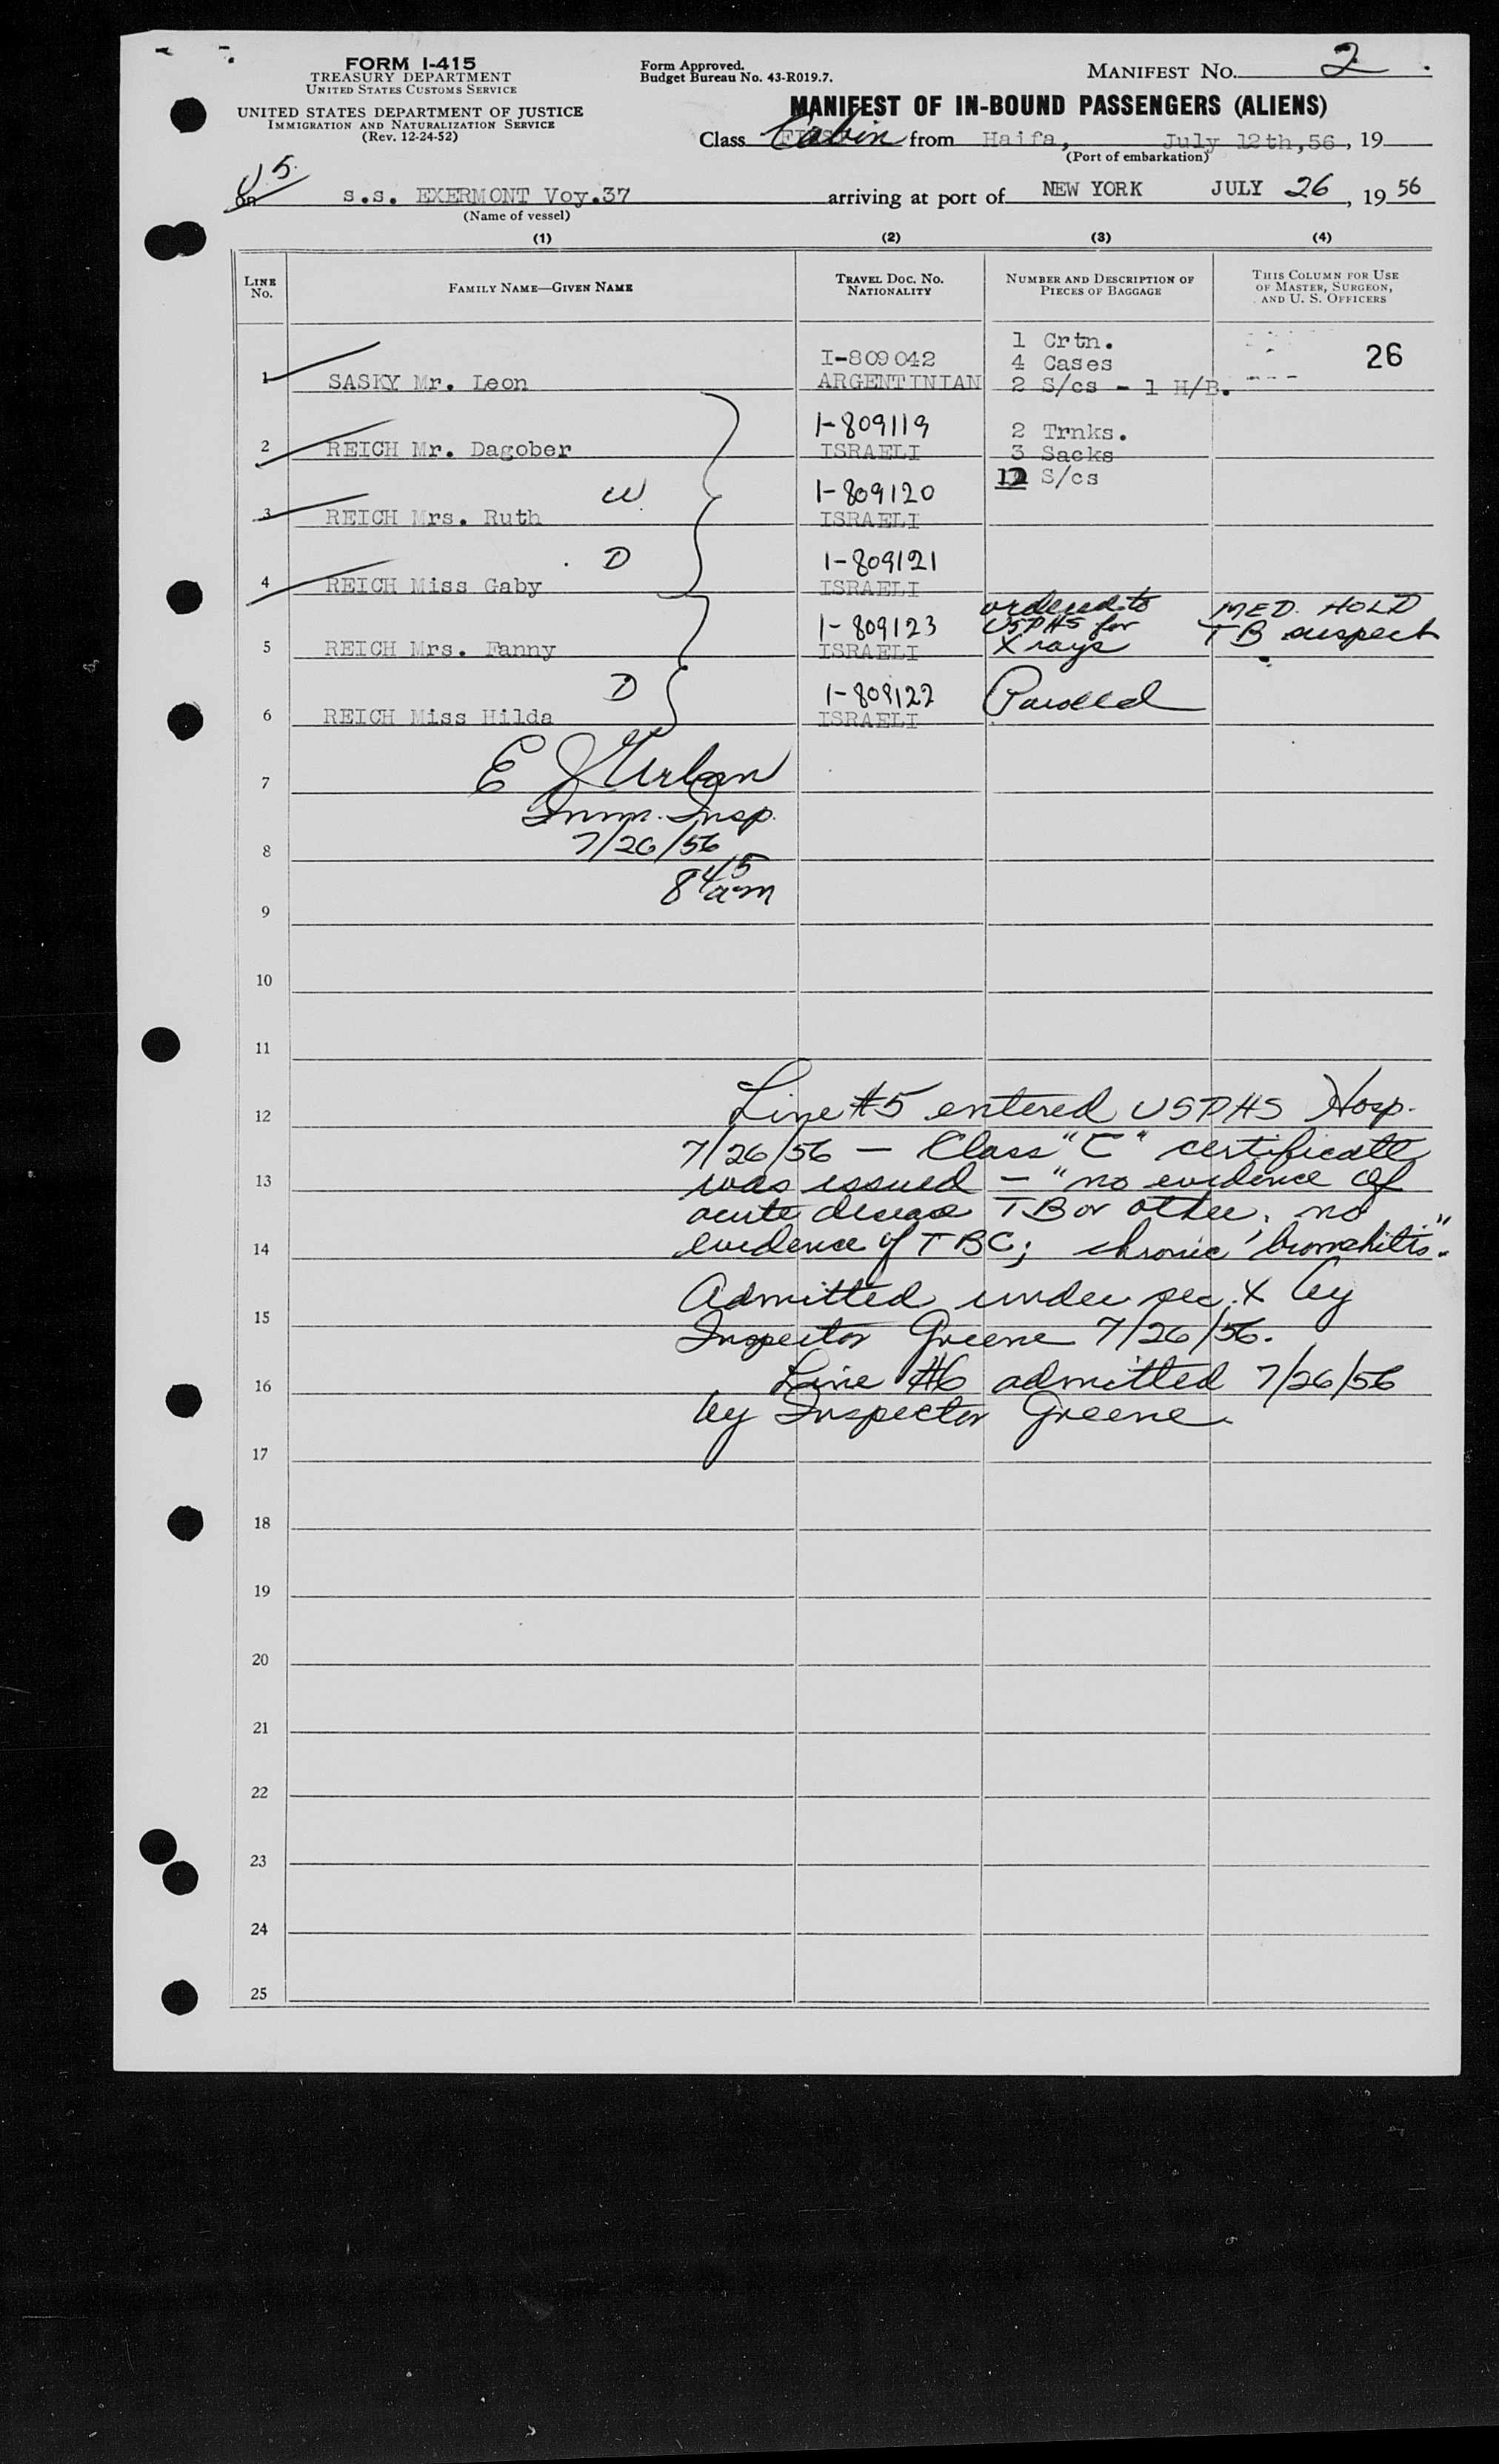 FORM I-415
TREASURY DEPARTMENT
UNITED STATES CUSTOMS SERVICE
UNITED STATES DEPARTMENT OF JUSTICE
IMMIGRATION AND NATURALIZATION SERVICE
(Rev. 12-24-52)
Form Approved.
Budget Bureau No. 43-R019.7.
MANIFEST NO. 2
MANIFEST OF IN-BOUND PASSENGERS (ALIENS)
Class Cabin from Haifa, July 12th,56, 19
(Port of embarkation)
on s.s. EXERMONT Voy.37 arriving at port of NEW YORK JULY 26, 19 56
(Name of vessel)
(1) (2) (3) (4)
LINE No. FAMILY NAME—GIVEN NAME TRAVEL DOC. NO. NATIONALITY NUMBER AND DESCRIPTION OF PIECES OF BAGGAGE THIS COLUMN FOR USE OF MASTER, SURGEON, AND U. S. OFFICERS
1 Crtn.
I-809042 4 Cases 26
1 SASKY Mr. Leon ARGENTINIAN 2 S/cs - 1 H/B.
1-809119 2 Trnks.
2 REICH Mr. Dagober ISRAELI 3 Sacks
W 1-809120 12 S/cs
3 REICH Mrs. Ruth ISRAELI
D 1-809121
4 REICH Miss Gaby ISRAELI
1-809123 ordered to USPHS for MED. HOLD
5 REICH Mrs. Fanny ISRAELI X rays TB suspect
D 1-809122 Paroled
6 REICH Miss Hilda ISRAELI
7 E J Urban
Imm. Insp.
8 7/26/56
8 45 am
9
10
11
12 Line #5 entered USPHS Hosp.
7/26/56 — Class "C" certificate
13 was issued — "no evidence of
acute disease TB or other, no
14 evidence of TBC; chronic bronchitis".
Admitted under sec. X by
15 Inspector Greene 7/26/56.
16 Line #6 admitted 7/26/56
by Inspector Greene.
17
18
19
20
21
22
23
24
25